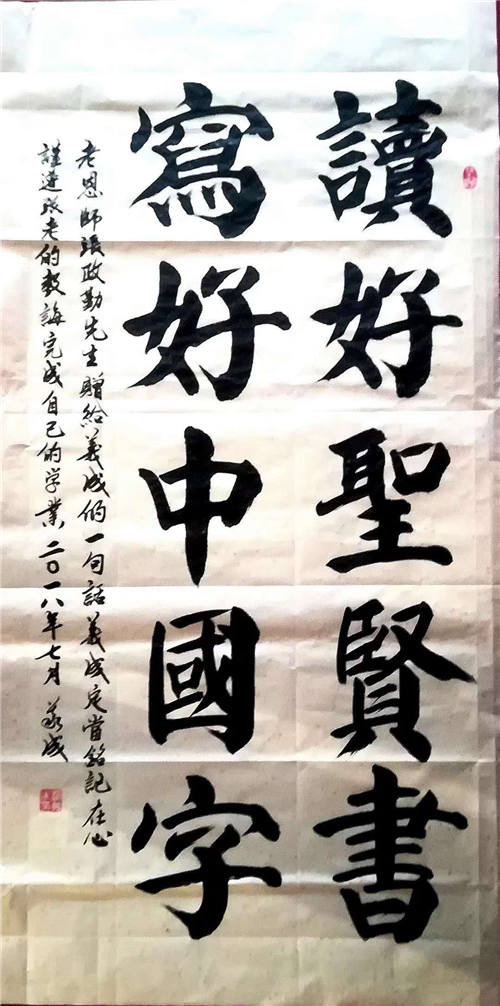 讀好聖賢書
寫好中國字
老恩師張政勤先生贈給義成的一句話義成定當銘記在心
謹遵張老的教誨完成自己的学業二〇一八年七月義成